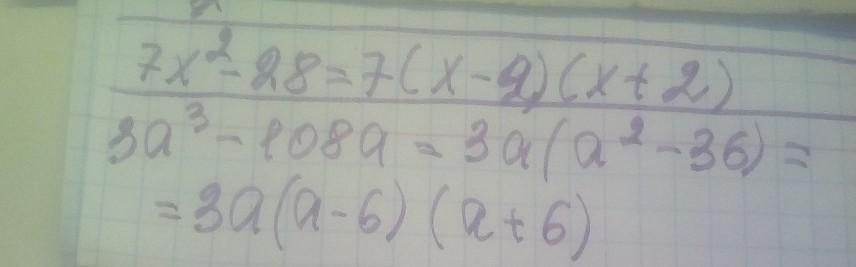 7x² - 28 = 7(x - 2)(x + 2)
3a³ - 108a = 3a(a² - 36) =
= 3a(a - 6)(a + 6)